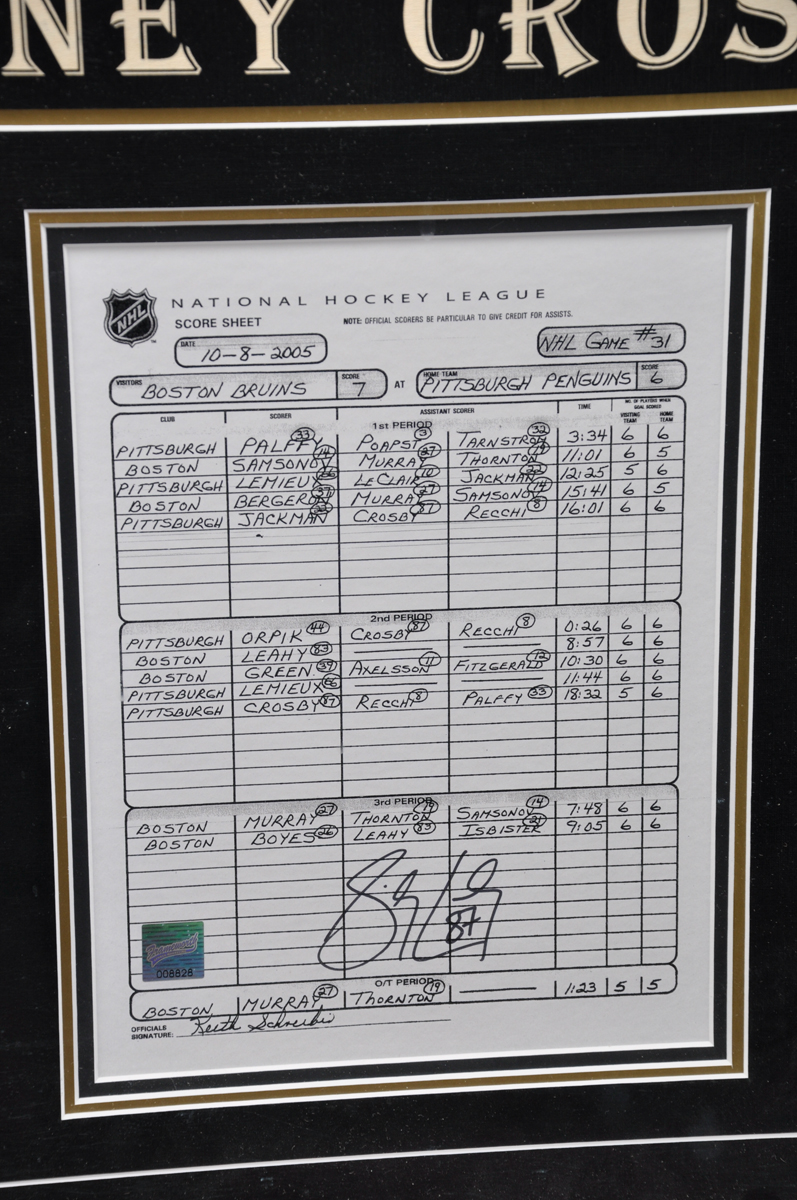 NEY CROS
NHL
NATIONAL HOCKEY LEAGUE
SCORE SHEET NOTE: OFFICIAL SCORERS BE PARTICULAR TO GIVE CREDIT FOR ASSISTS.
DATE 10-8-2005 NHL GAME #31
VISITORS BOSTON BRUINS SCORE 7 AT HOME TEAM PITTSBURGH PENGUINS SCORE 6
CLUB SCORER ASSISTANT SCORER TIME NO. OF PLAYERS WHEN GOAL SCORED VISITING TEAM HOME TEAM
1st PERIOD
PITTSBURGH PALFFY 33 POAPST 3 TARNSTROM 32 3:34 6 6
BOSTON SAMSONOV 14 MURRAY 27 THORNTON 19 11:01 6 5
PITTSBURGH LEMIEUX 66 LECLAIR 10 JACKMAN 22 12:25 5 6
BOSTON BERGERON 37 MURRAY 27 SAMSONOV 14 15:41 6 5
PITTSBURGH JACKMAN 22 CROSBY 87 RECCHI 8 16:01 6 6
2nd PERIOD
PITTSBURGH ORPIK 44 CROSBY 87 RECCHI 8 0:26 6 6
BOSTON LEAHY 83 8:57 6 6
BOSTON GREEN 39 AXELSSON 11 FITZGERALD 12 10:30 6 6
PITTSBURGH LEMIEUX 66 11:44 6 6
PITTSBURGH CROSBY 87 RECCHI 8 PALFFY 33 18:32 5 6
3rd PERIOD
BOSTON MURRAY 27 THORNTON 19 SAMSONOV 14 7:48 6 6
BOSTON BOYES 26 LEAHY 83 ISBISTER 21 9:05 6 6
87
008828
O/T PERIOD
BOSTON MURRAY 27 THORNTON 19 1:23 5 5
OFFICIALS
SIGNATURE: Keith Schreiber